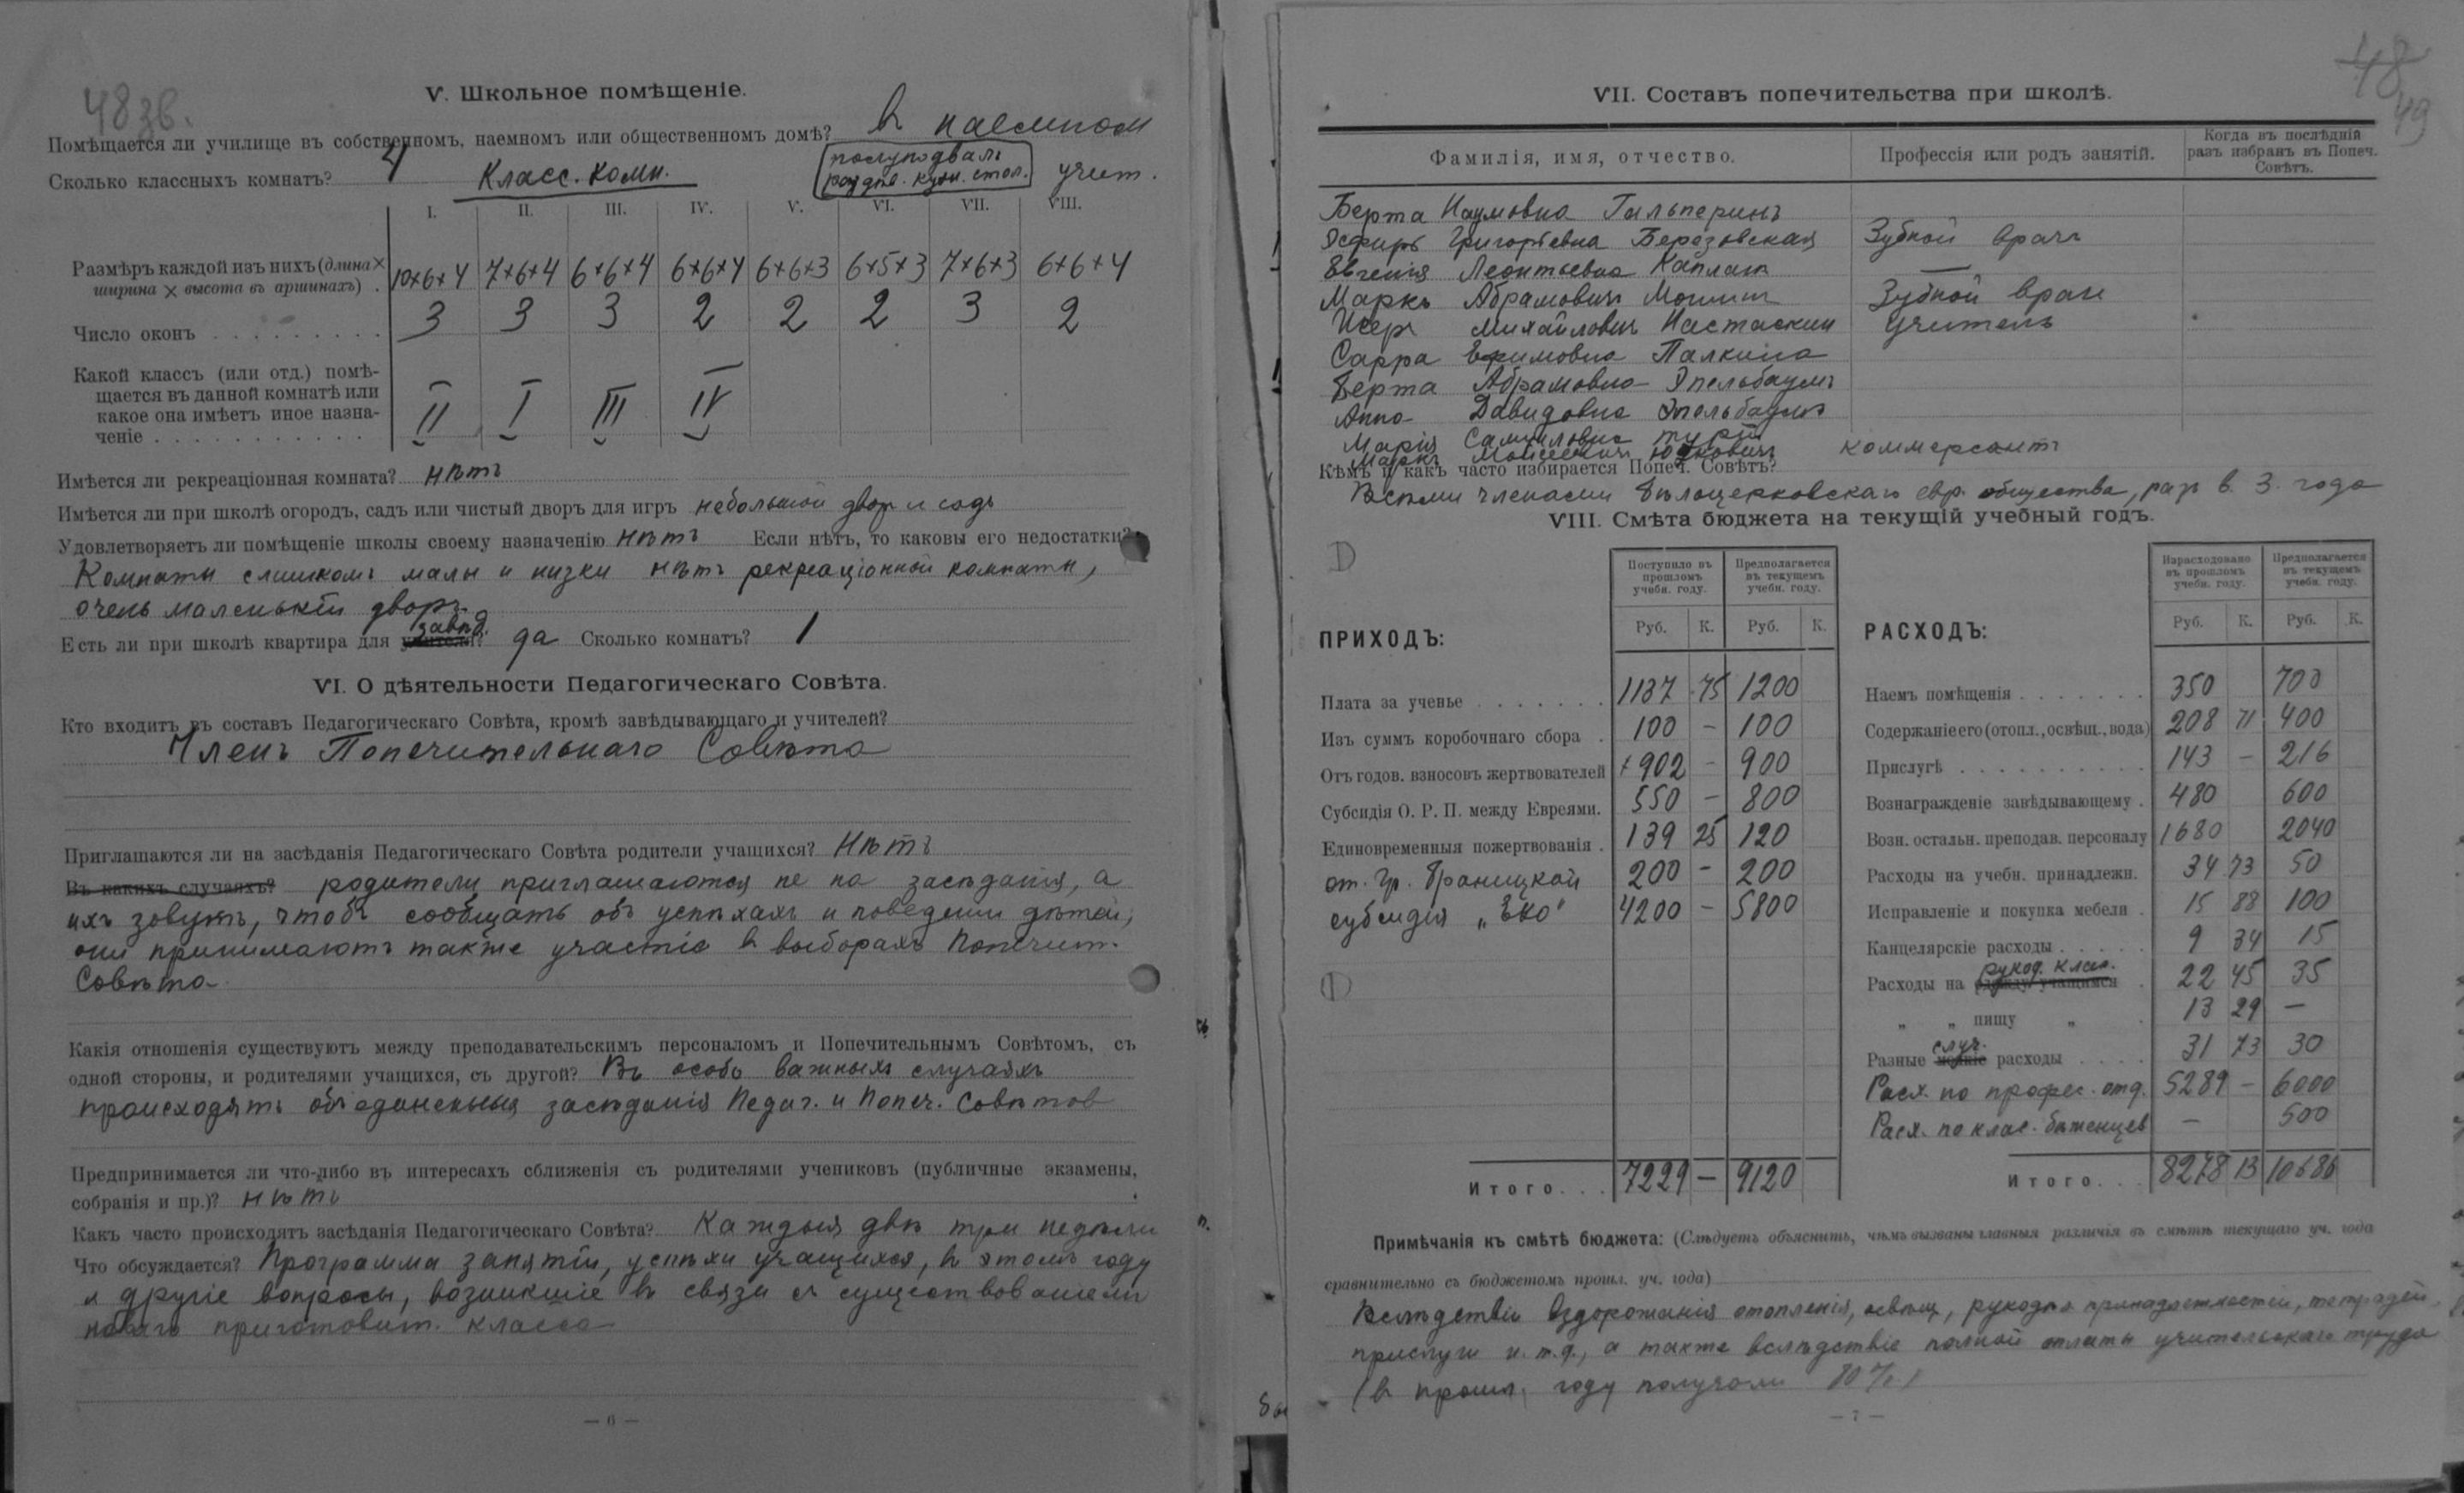 48 зв.
V. Школьное помѣщеніе.
Помѣщается ли училище въ собственномъ, наемномъ или общественномъ домѣ? въ наемном
Сколько классныхъ комнатъ? 4 Класс. комн. полуподвалъ учит.
раздѣв. кухн. стол.
I. II. III. IV. V. VI. VII. VIII.
Размѣръ каждой изъ нихъ (длина × ширина × высота въ аршинахъ) . 10×6×4 7×6×4 6×6×4 6×6×4 6×6×3 6×5×3 7×6×3 6×6×4
Число оконъ . . . . . . . . . 3 3 3 2 2 2 3 2
Какой классъ (или отд.) помѣ-
щается въ данной комнатѣ или
какое она имѣетъ иное назна-
ченіе . . . . . . . . . . . II I III IV
Имѣется ли рекреаціонная комната? нѣтъ
Имѣется ли при школѣ огородъ, садъ или чистый дворъ для игръ небольшой двор и садъ
Удовлетворяетъ ли помѣщеніе школы своему назначенію нѣтъ Если нѣтъ, то каковы его недостатки?
Комнаты слишкомъ малы и низки нѣтъ рекреаціонной комнаты,
очень маленькій дворъ
Есть ли при школѣ квартира для учителя? завѣд. да Сколько комнатъ? 1
VI. О дѣятельности Педагогическаго Совѣта.
Кто входитъ въ составъ Педагогическаго Совѣта, кромѣ завѣдывающаго и учителей?
Членъ Попечительнаго Совѣта
Приглашаются ли на засѣданія Педагогическаго Совѣта родители учащихся? Нѣтъ
Въ какихъ случаяхъ? родители приглашаются не на засѣданія, а
ихъ зовутъ, чтобъ сообщать объ успѣхахъ и поведении дѣтей,
они принимаютъ также участіе въ выборахъ Попечит.
Совѣта
Какія отношенія существуютъ между преподавательскимъ персоналомъ и Попечительнымъ Совѣтомъ, съ
одной стороны, и родителями учащихся, съ другой? Въ особо важныхъ случаяхъ
происходятъ объединенныя засѣданія Педаг. и Попеч. Совѣтов
Предпринимается ли что-либо въ интересахъ сближенія съ родителями учениковъ (публичные экзамены,
собранія и пр.)? нѣтъ
Какъ часто происходятъ засѣданія Педагогическаго Совѣта? Каждыя двѣ три недѣли
Что обсуждается? Программа занятій, успѣхи учащихся, въ этомъ году
и другіе вопросы, возникшіе въ связи съ существованіемъ
новаго приготовит. класса
— 6 —
48
49
VII. Составъ попечительства при школѣ.
Фамилія, имя, отчество. Профессія или родъ занятій. Когда въ послѣдній разъ избранъ въ Попеч. Совѣтъ.
Берта Наумовна Гальперинъ
Эсфирь Григорьевна Березовская Зубной врачъ
Евгенія Леонтьевна Капланъ —
Маркъ Абрамовичъ Зубной врач
Михайловичъ Настаскин учитель
Сарра Ефимовна Палкина
Берта Абрамовна Эпельбаумъ
Анна Давидовна Эпельбаумъ
Марія Самуиловна
Маркъ Моисеевич Юдковичъ коммерсантъ
Кѣмъ и какъ часто избирается Попеч. Совѣтъ?
Всѣми членами Бѣлоцерковскаго евр. общества, разъ в. 3. года
VIII. Смѣта бюджета на текущій учебный годъ.
ПРИХОДЪ: Поступило въ прошломъ учебн. году. Предполагается въ текущемъ учебн. году.
Руб. К. Руб. К.
Плата за ученье . . . . . . . 1137 75 1200
Изъ суммъ коробочнаго сбора . 100 — 100
Отъ годов. взносовъ жертвователей +902 — 900
Субсидія О. Р. П. между Евреями. 550 — 800
Единовременныя пожертвованія . 139 25 120
от. Гр. Браницкой 200 — 200
субсидія „ЕКО" 4200 — 5800
Итого. . . 7229 — 9120
РАСХОДЪ: Израсходовано въ прошломъ учебн. году. Предполагается въ текущемъ учебн. году.
Руб. К. Руб. К.
Наемъ помѣщенія . . . . . . . 350 700
Содержаніе его (отопл., освѣщ., вода) 208 71 400
Прислугѣ . . . . . . . . . . 143 — 216
Вознагражденіе завѣдывающему . 480 600
Возн. остальн. преподав. персоналу 1680 2040
Расходы на учебн. принадлежн. 34 73 50
Исправленіе и покупка мебели . 15 88 100
Канцелярскіе расходы . . . . . 9 34 15
Расходы на одежду учащимся рукод. клас. . 22 45 35
„ „ пищу „ . 13 29 —
Разные мелкіе случ. расходы . . . . 31 73 30
Расх. по профес. отд. 5289 — 6000
Расх. по клас. бѣженцев — 500
Итого. . . 8278 13 10686
Примѣчанія къ смѣтѣ бюджета: (Слѣдуетъ объяснить, чѣмъ вызваны главныя различія въ смѣтѣ текущаго уч. года
сравнительно съ бюджетомъ прошл. уч. года)
Вслѣдствіи вздорожанія отопленія, освѣщ, рукодѣл принадлежностей, тетрадей,
прислуги и. т. д., а также вслѣдствіе полной оплаты учительскаго труда
(въ прошл. году получали 80%)
— 7 —